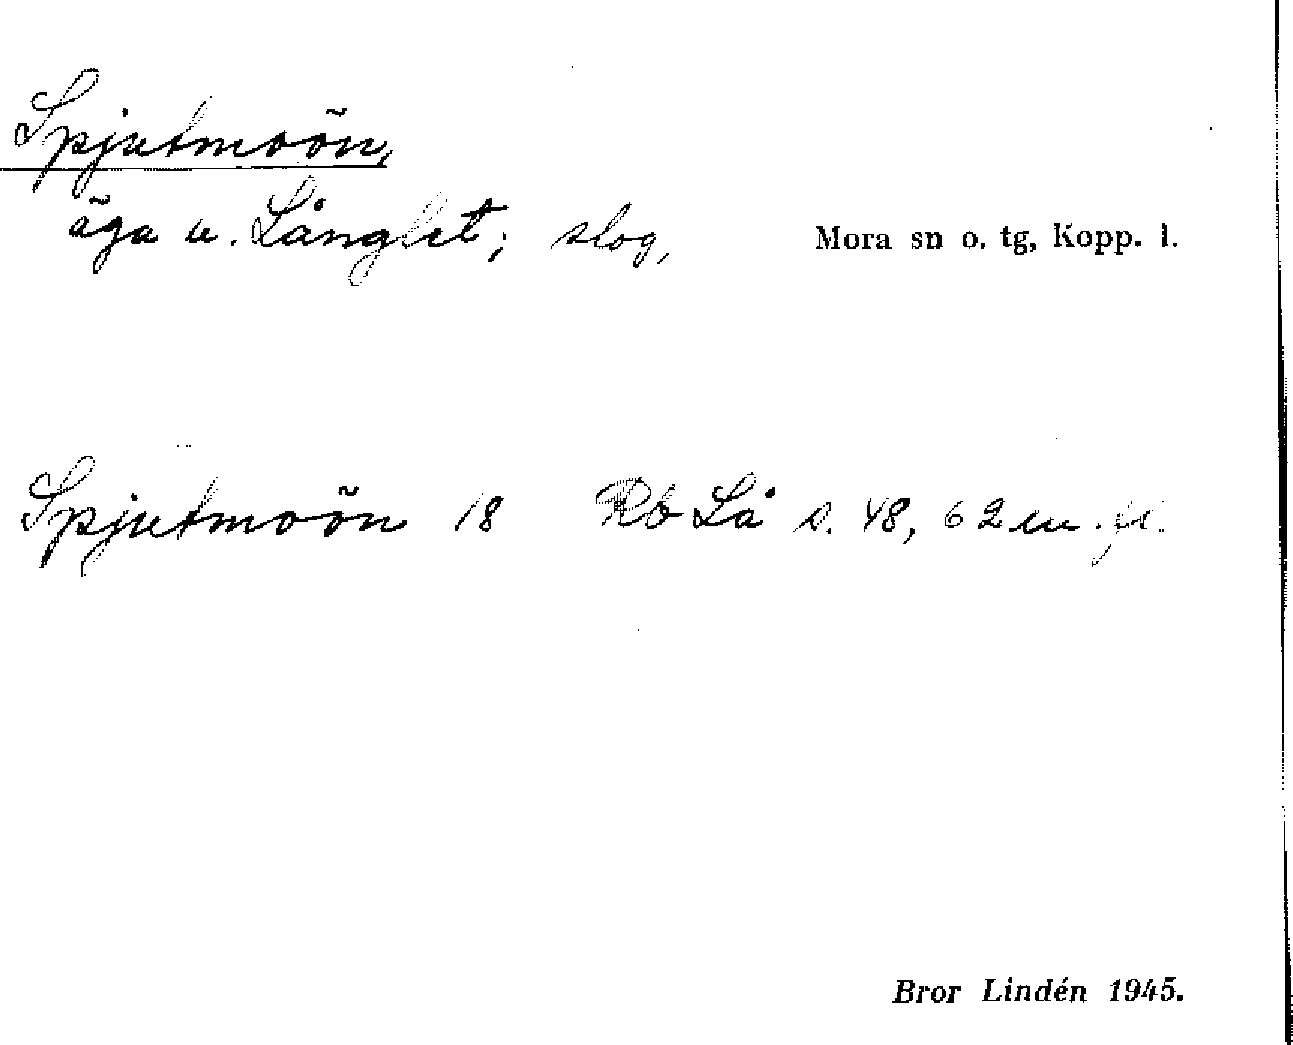 Spjutmoön,
äga u. Långlet; slog,
Mora sn o. tg, Kopp. l.
Spjutmoön 18 Rb Lå s. 48, 62 m. fl.
Bror Lindén 1945.